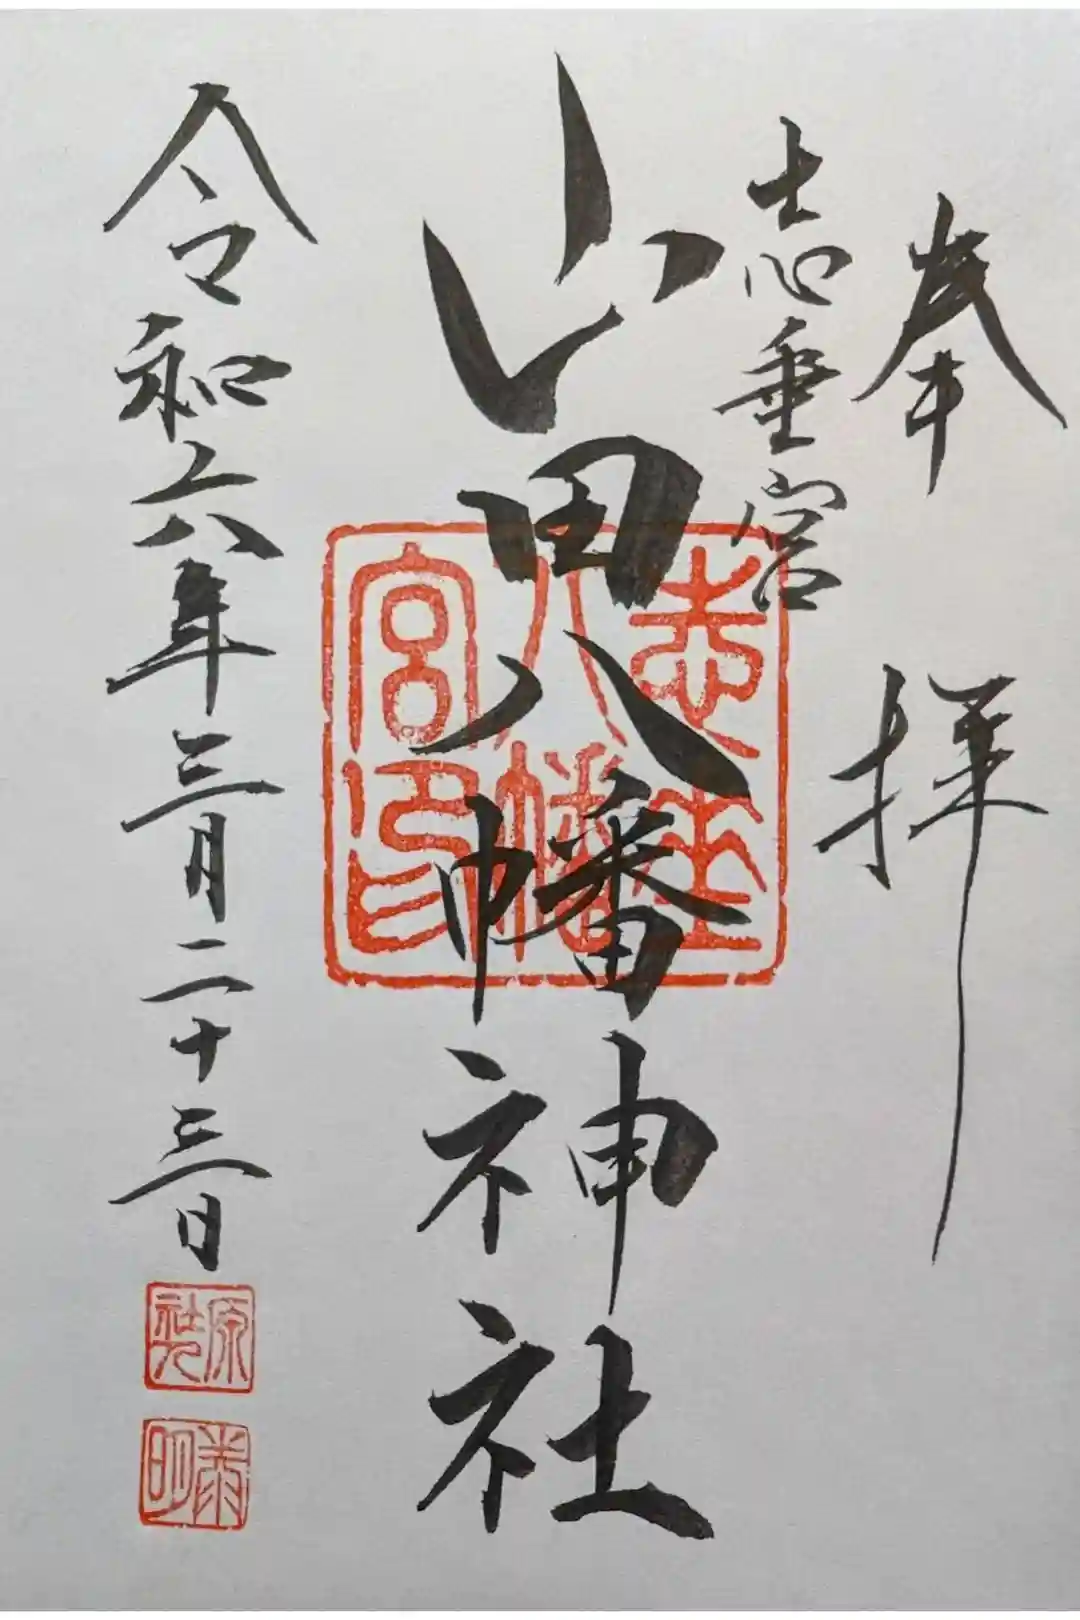 奉拝
志垂宮
山田八幡神社
令和六年三月二十三日
志垂
八幡
宮印